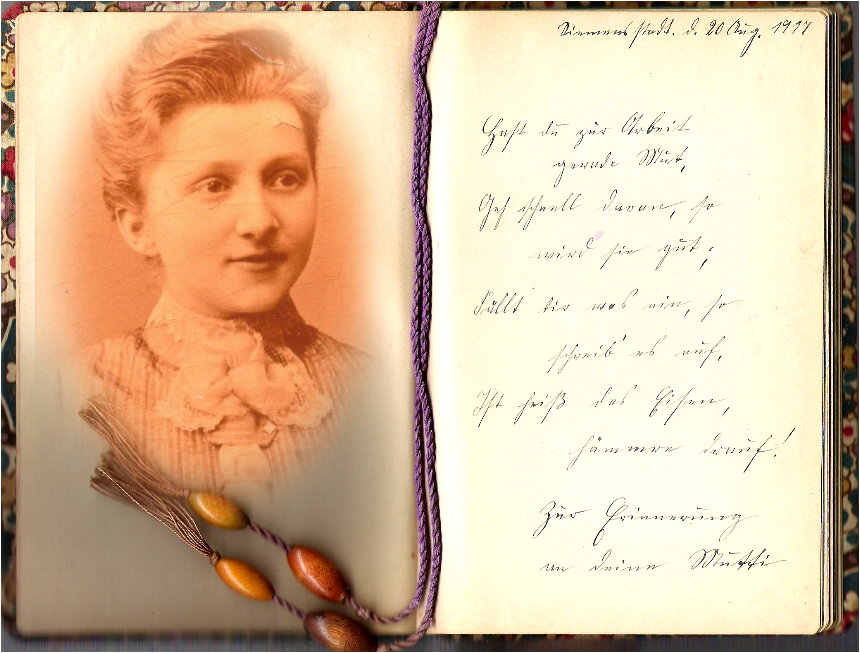 Siemensstadt. d. 20 Aug. 1917
Hast du zur Arbeit
gerade Mut,
Geh schnell daran, so
wird sie gut;
Fällt dir was ein, so
schreib es auf,
Ist heiß das Eisen,
hämmre drauf!
Zur Erinnerung
an deine Mutti